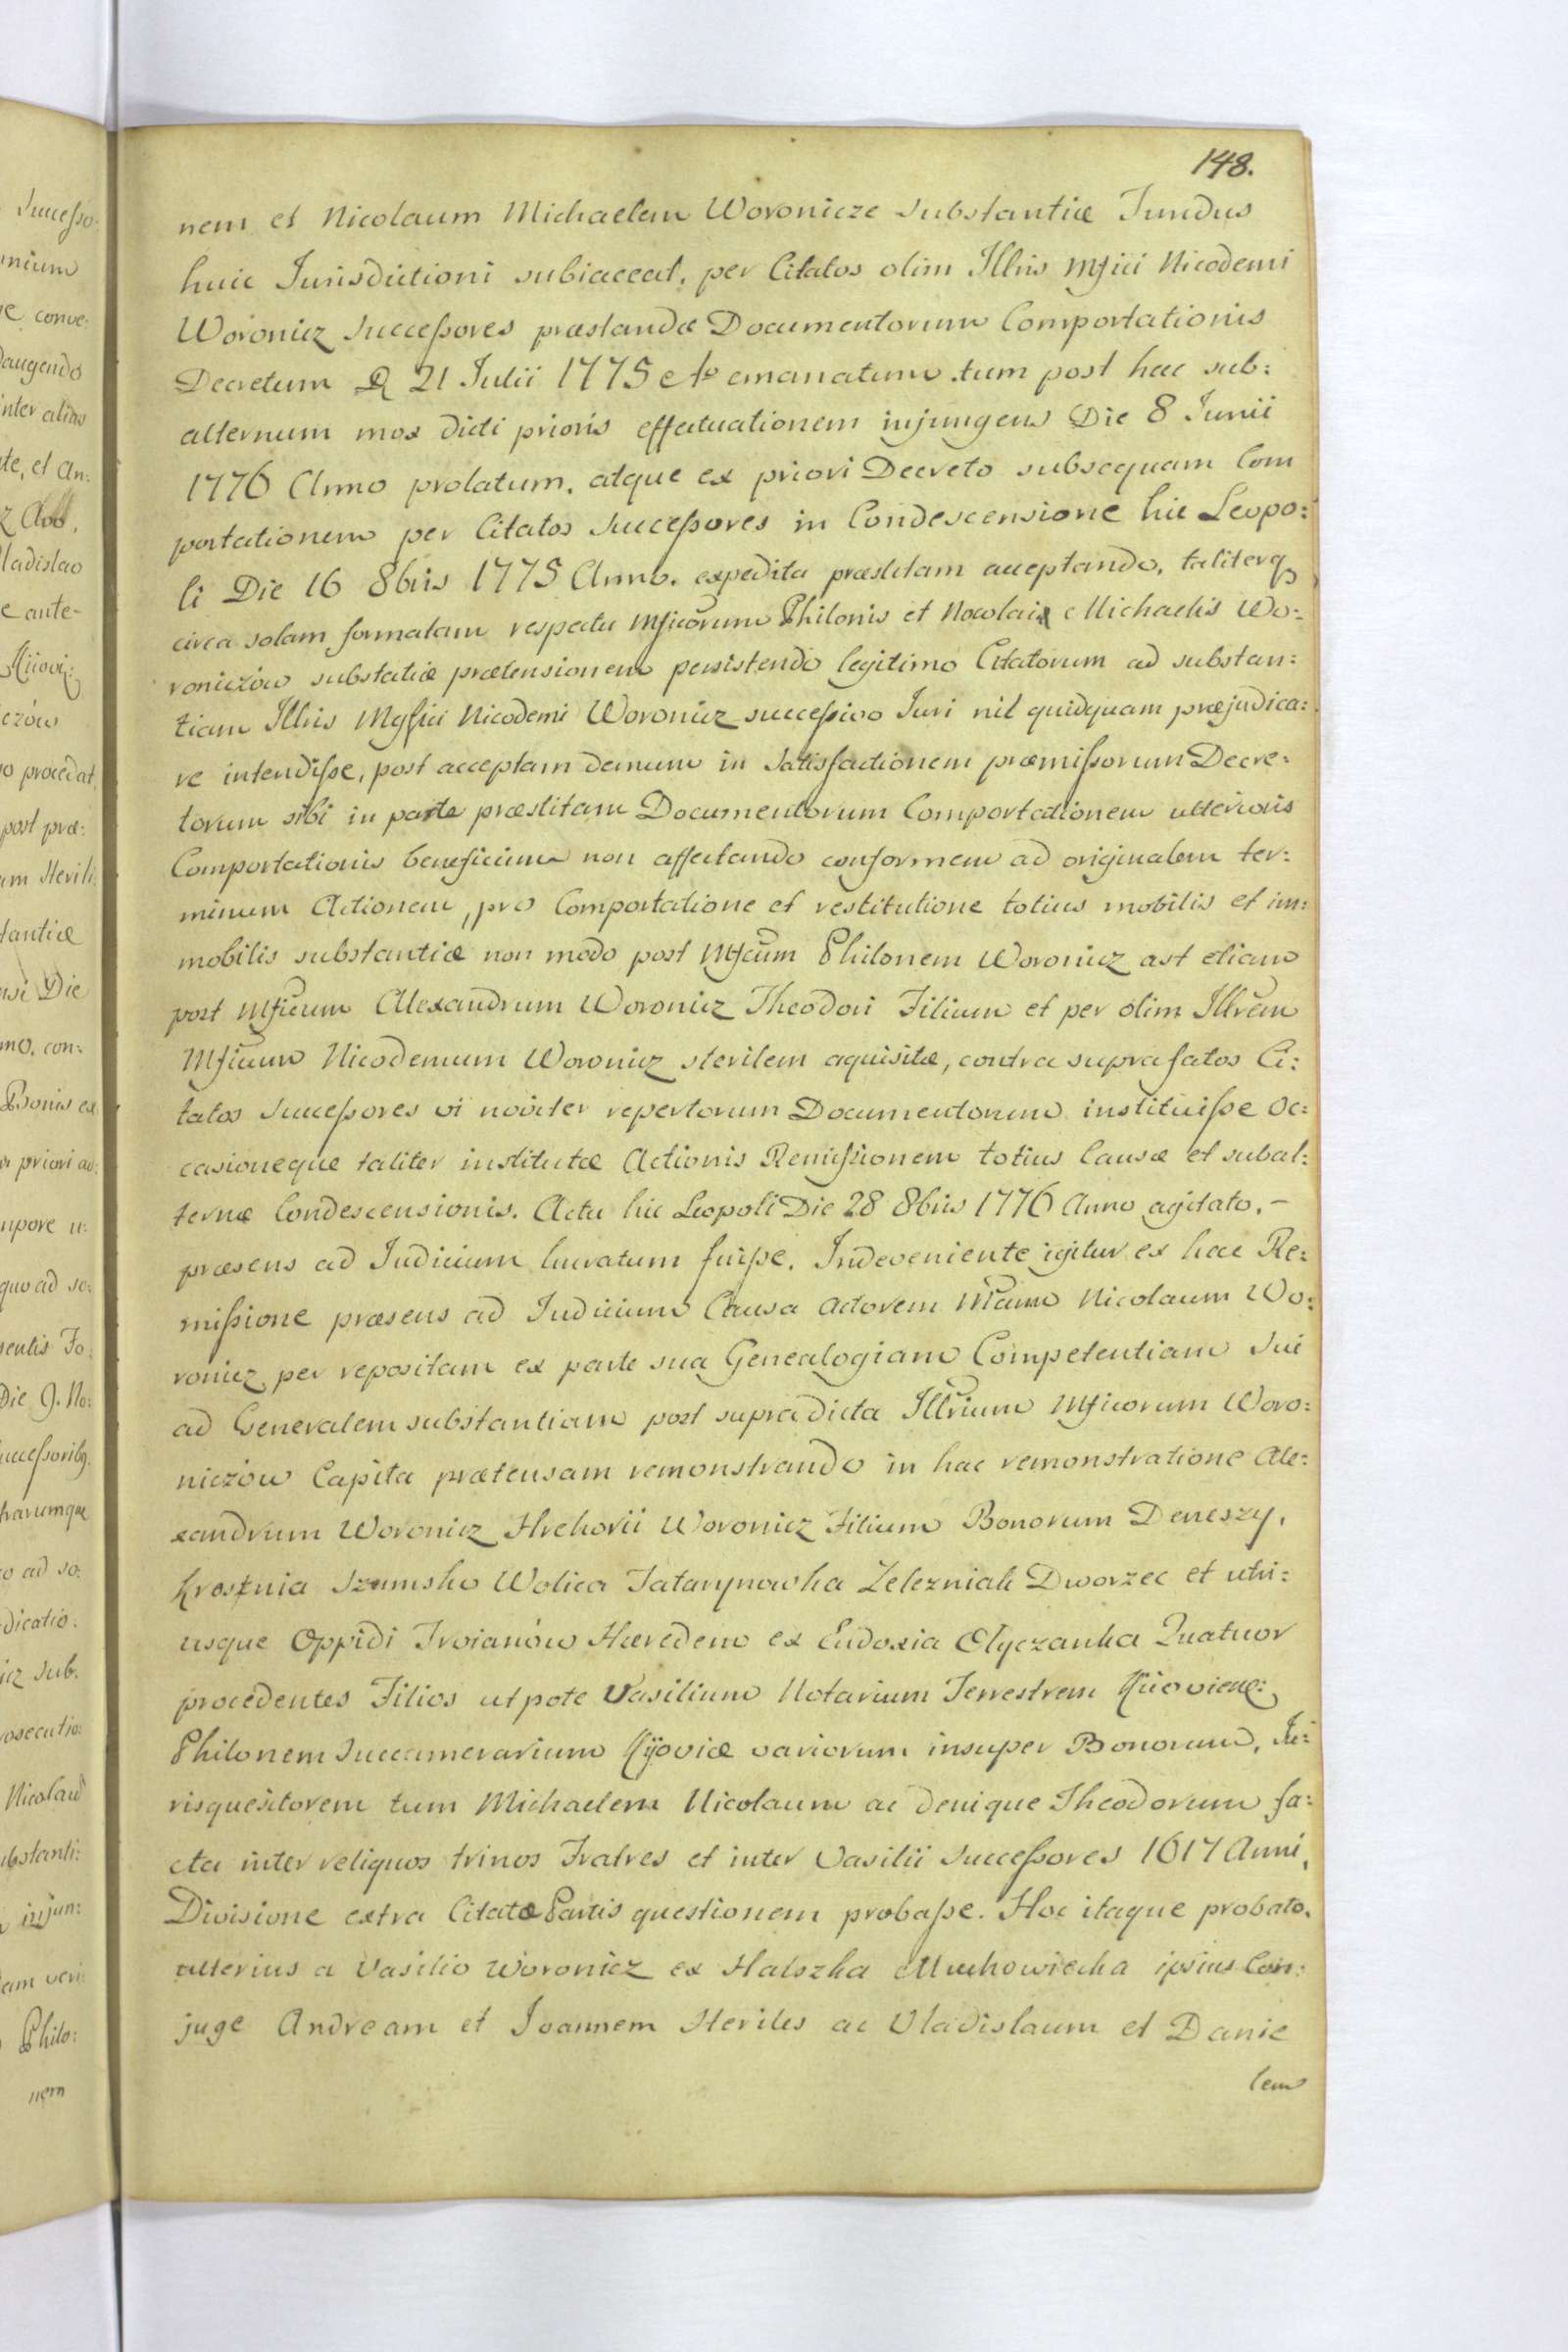 148.
nem et Nicolaum Michaelem Woronicze substantiæ Fundus
huic Jurisdictioni subiaceat, per Citatos olim Illris Mfici Nicodemi
Woronicz Succeſsores præstandæ Documentorum Comportationis
Decretum D 21 Julii 1775 Ao emanatum. tum post hac sub:
alternum mox dicti prioris effectuationem injungens Die 8 Junii
1776 Anno prolatum, atque ex priori Decreto subsequam Com
portationem per Citatos Succeſsores in Condescensione hic Leopo:
li Die 16 8bris 1775 Anno. expedita præstitam acceptando, taliterq
circa solam formatam respectu Mficorum Philonis et Nocolai Michaelis Wo:
roniczów substatiæ prætensionem persistendo legitimo Citatorum ad substan:
tiam Illris Mgfici Nicodemi Woronicz succeſsivo Juri nil quidquam præjudica:
re intendiſse, post acceptam demum in Satisfactionem præmiſsorum Decre:
torum sibi in parte præstitam Documentorum Comportationem ulterioris
Comportationis beneficium non affectando conformem ad originalem ter:
minum Actionem, pro Comportatione et restitutione totius mobilis et im:
mobilis substantiæ non modo post Mfcum Philonem Woronicz ast etiam
post Mficum Alexandrum Woronicz Theodori Filium et per olim Illrem
Mficum Nicodemum Woronicz sterilem aquisitæ, contra suprafatos Ci:
tatos Succeſsores vi noviter repertorum Documentorum instituiſse Oc:
casioneque taliter institutæ Actionis Remiſsionem totius Causæ et subal:
ternæ Condescensionis. Actu hic Leopoli Die 28 8bris 1776 Anno agitato. –
præsens ad Judicium lucratum fuiſse. Indeveniente igitur ex hac Re:
miſsione præsens ad Judicium Causa Actorem Mcum Nicolaum Wo:
ronicz per repositam ex parte sua Genealogiam Competentiam Sui
ad Generalem substantiam post supradicta Illrium Mficorum Woro:
niczów Capita prætensam remonstrando in hac remonstratione Ale:
xandrum Woronicz Hrehorii Woronicz Filium Bonorum Deneszy,
Krostnia Szumsko Wolica Tatarynowka Zelezniak Dworzec et utri:
usque Oppidi Troianów Hæredem ex Eudoxia Olyczanka Quatuor
procedentes Filios utpote Vasilium Notarium Terrestrem Kiioviens:
Philonem Succamerarium Kijoviæ variorum insuper Bonorum, Ju:
risquesitorem tum Michaelem Nicolaum ac denique Theodorum fa:
cta inter reliquos trinos Fratres et inter Vasilii Succeſsores 1617 Anni,
Divisione extra Citatæ Partis questionem probaſse. Hoc itaque probato,
ulterius a Vasilio Woronicz ex Halszka Muchowiecka ipsius Con:
juge Andream et Joannem Steriles ac Vladislaum et Danie
lem